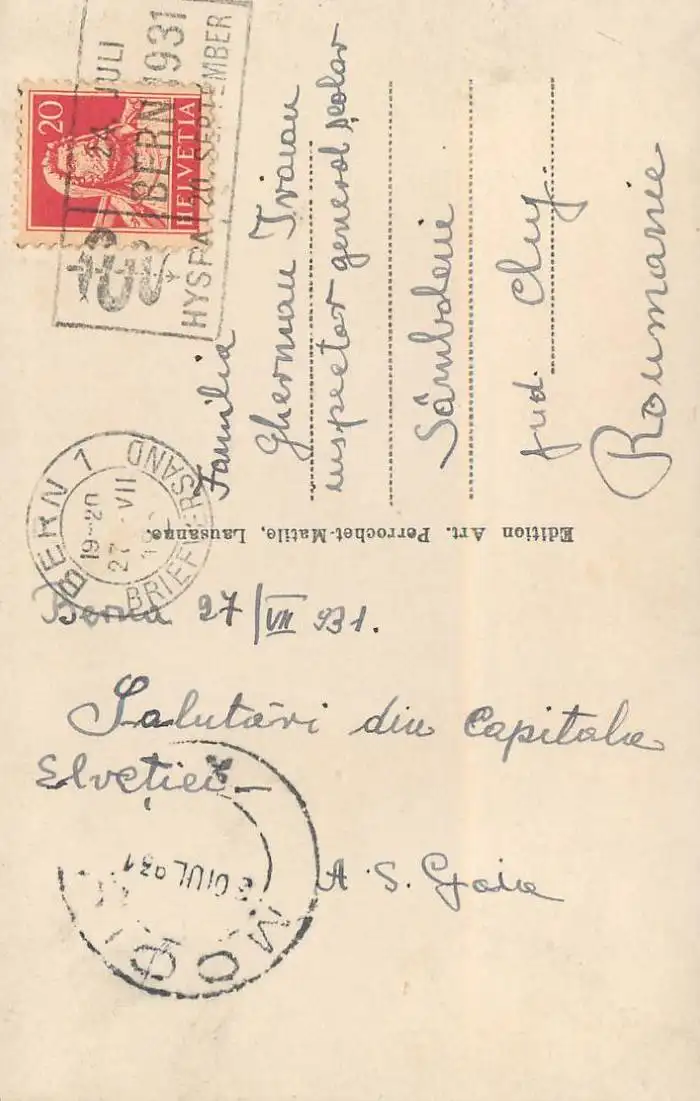 20
HELVETIA
24 JULI
BERN 1931
HYSPA 20. SEPTEMBER
BERN 1
19-20
27. VII
BRIEFVERSAND
Familia
Gherman Traian
inspector general școlar
Sâmboleni
jud. Cluj
Roumanie
Edition Art. Perrochet-Matile, Lausanne.
Berna 27/VII 931.
Salutări din Capitala
Elveției –
A. S.
IUL 931